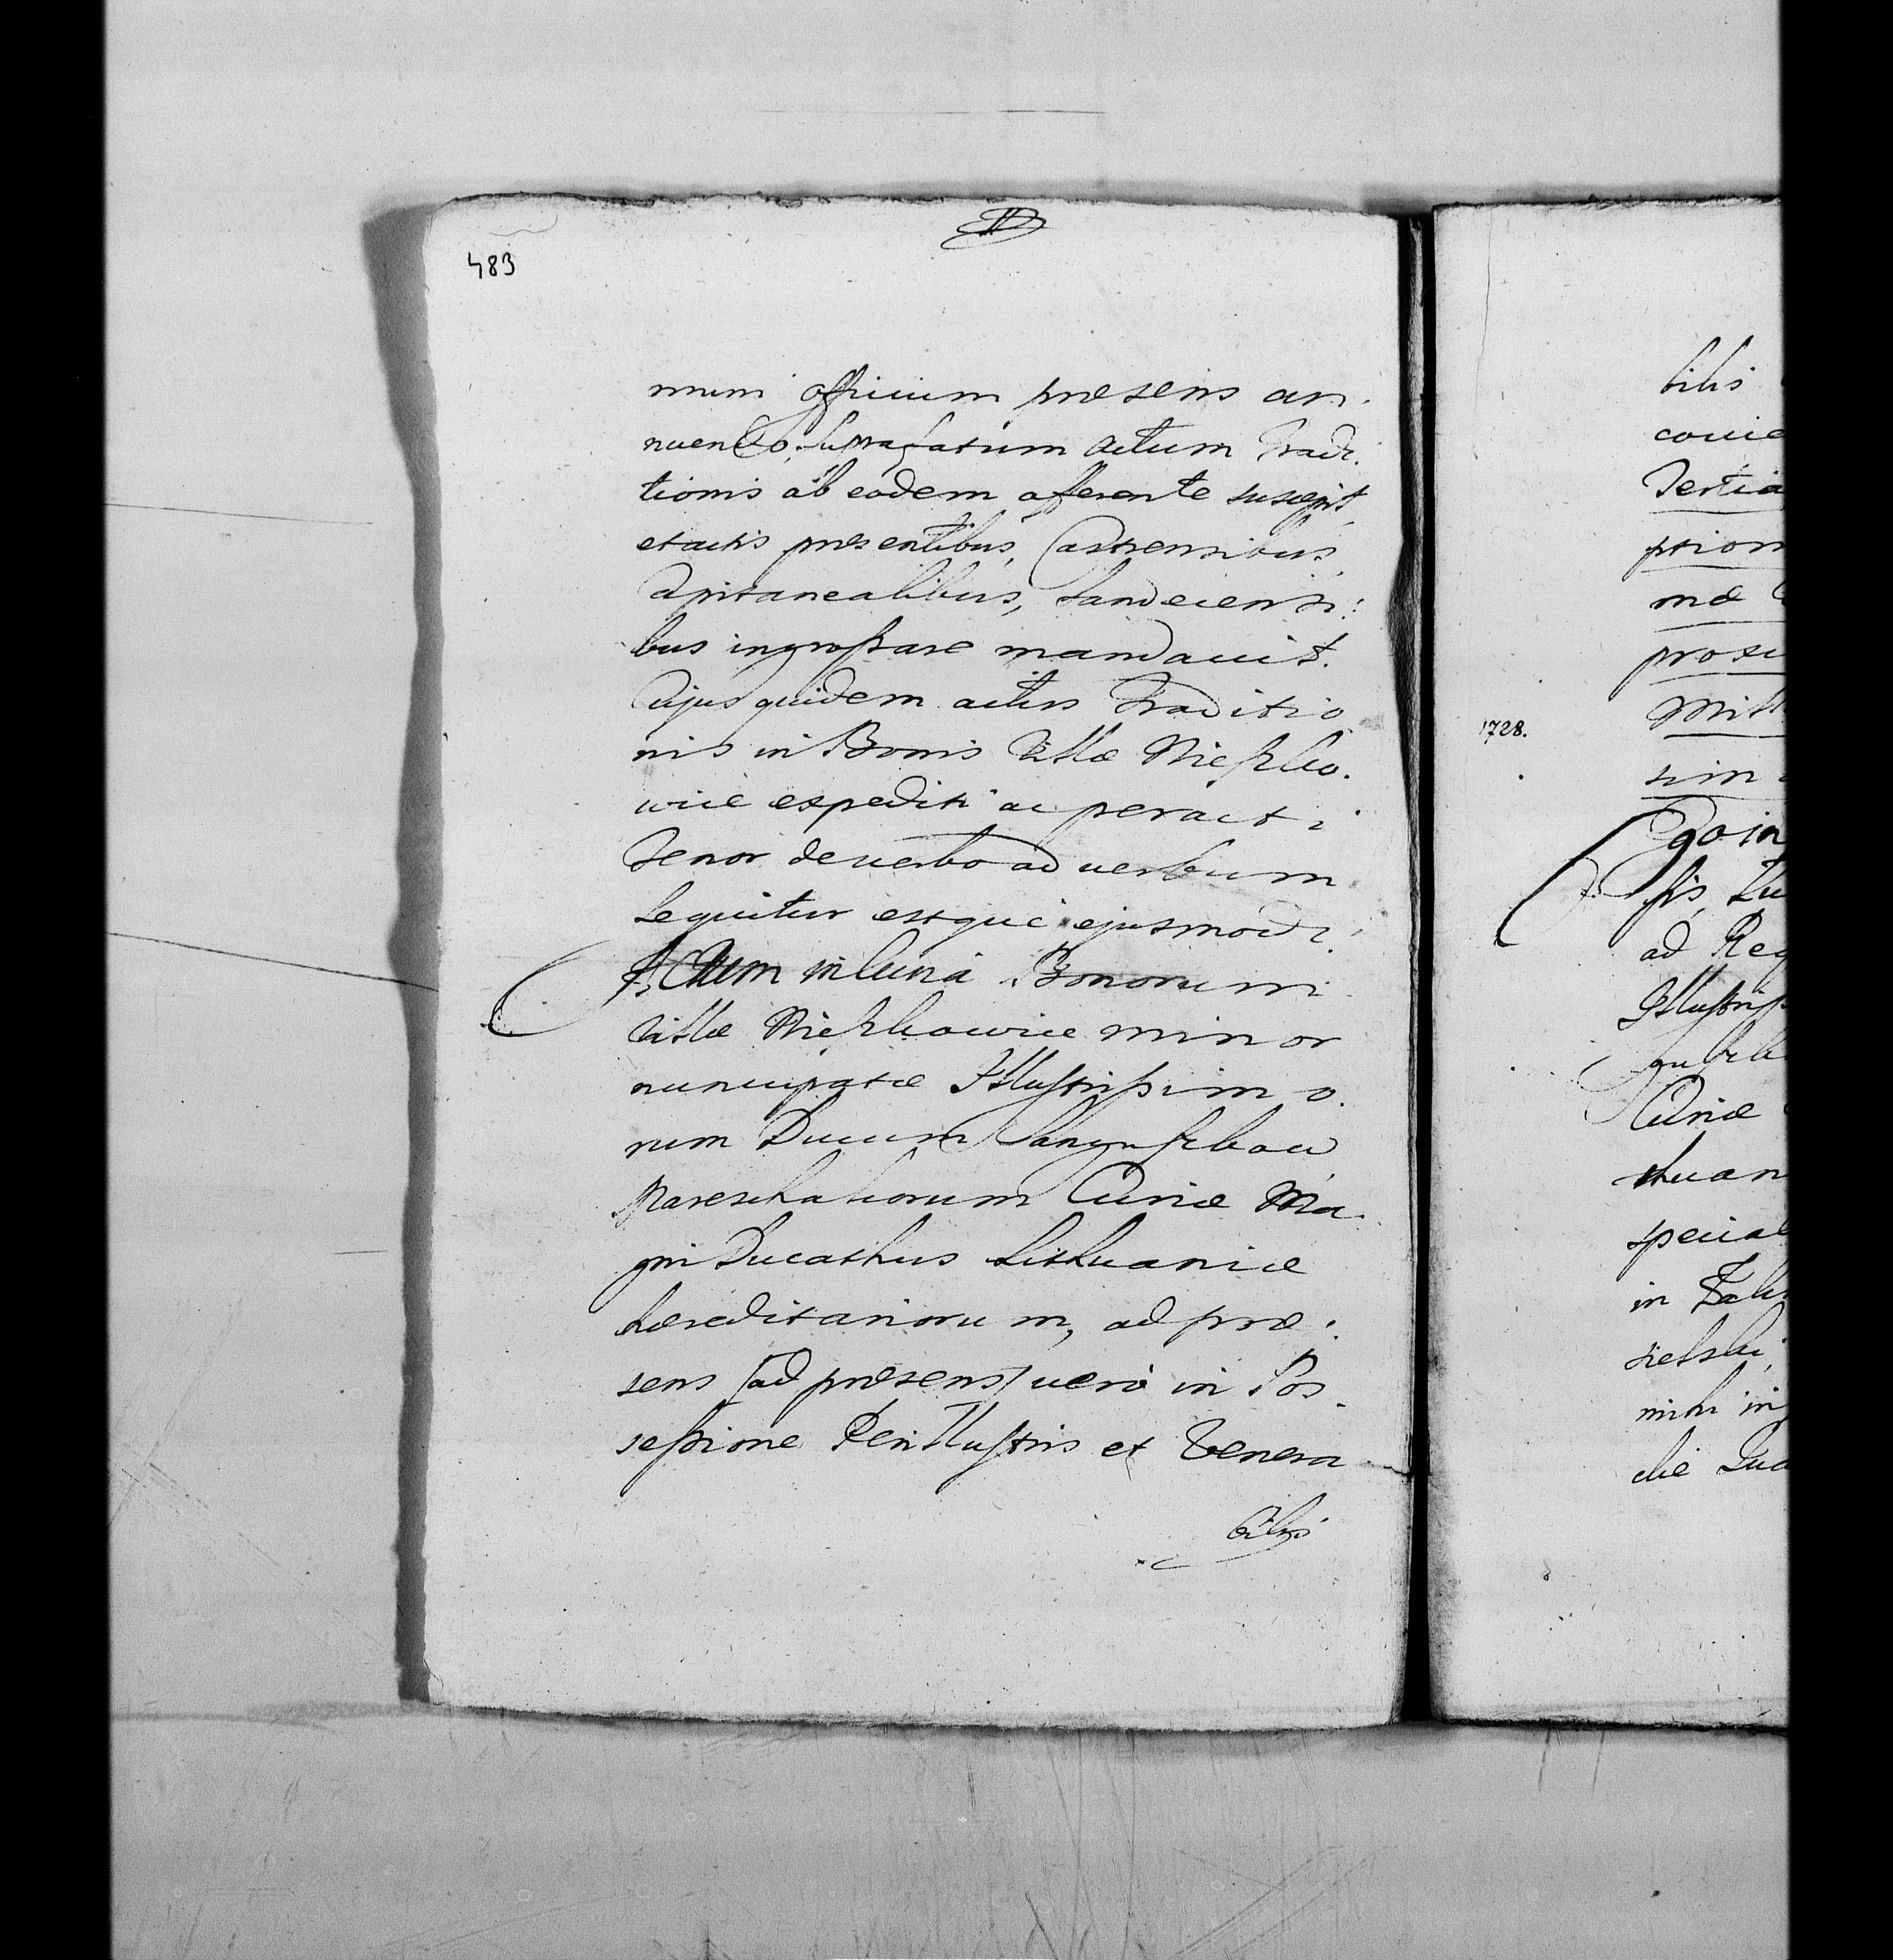 483
mum officium præsens an-
nuendo, suprafatum actum Tradi-
tionis ab eodem offerente suscepit,
et actis præsentibus, Castrensibus,
Capitanealibus, Sandecensi:
bus ingrossare mandavit.
Cujus quidem actus Traditio
nis in Bonis Villæ Nieszko.
wice expediti ac peracti
Tenor de verbo ad verbum
sequitur estque ejusmodi:
Actum in Curia Bonorum
Villæ Nieszkowice minor
nuncupatæ Illustrissimo.
rum Ducum Sanguszkow
Mareschalcorum Curiæ Ma-
gni Ducathus Lithuaniæ
hæreditariorum, ad præ:
sens (ad præsens) vero in Pos
sessione Perillustris et Venera
bilis
bilis
Tertia
ption
mæ
1728.
Ego in
ad Reg
Curiæ
thuan
special
in
mihi in
die